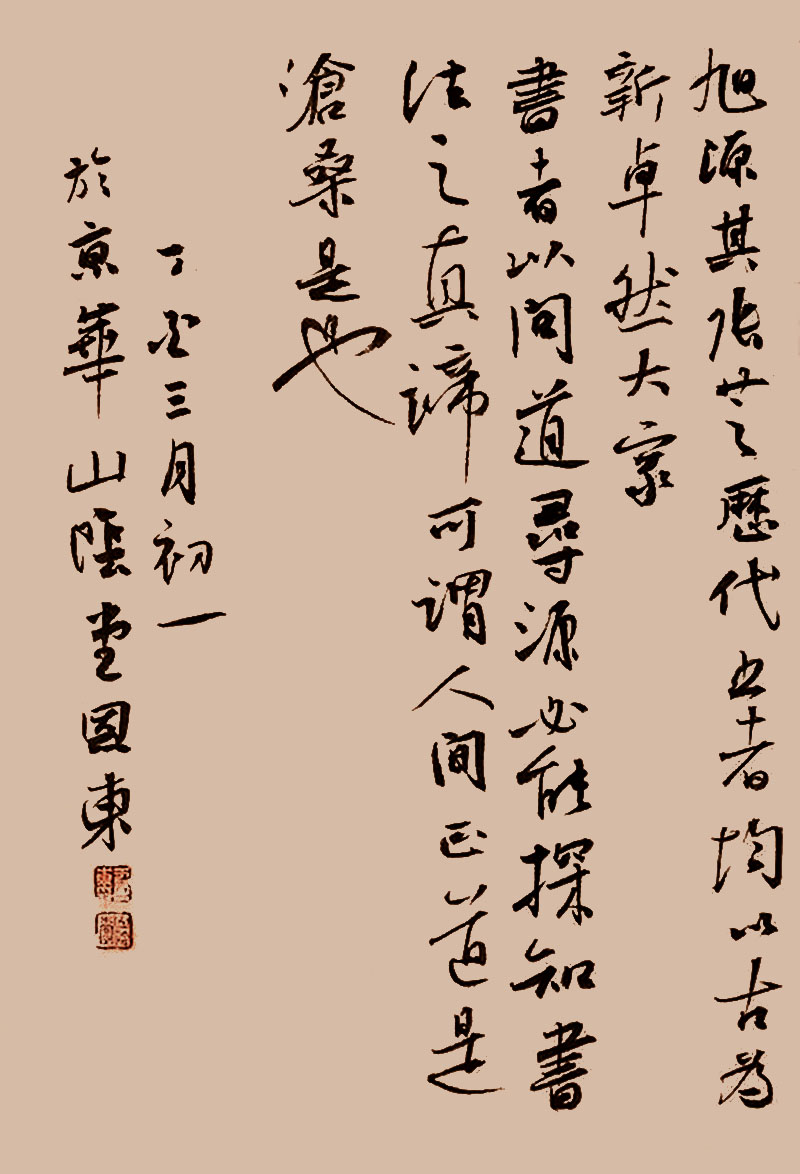 旭源其張芝歷代書者均以古為
新卓然大家
書者以問道尋源必能探知書
法之真諦可謂人間正道是
滄桑是也
丁亥三月初一
於京華山陰堂國東